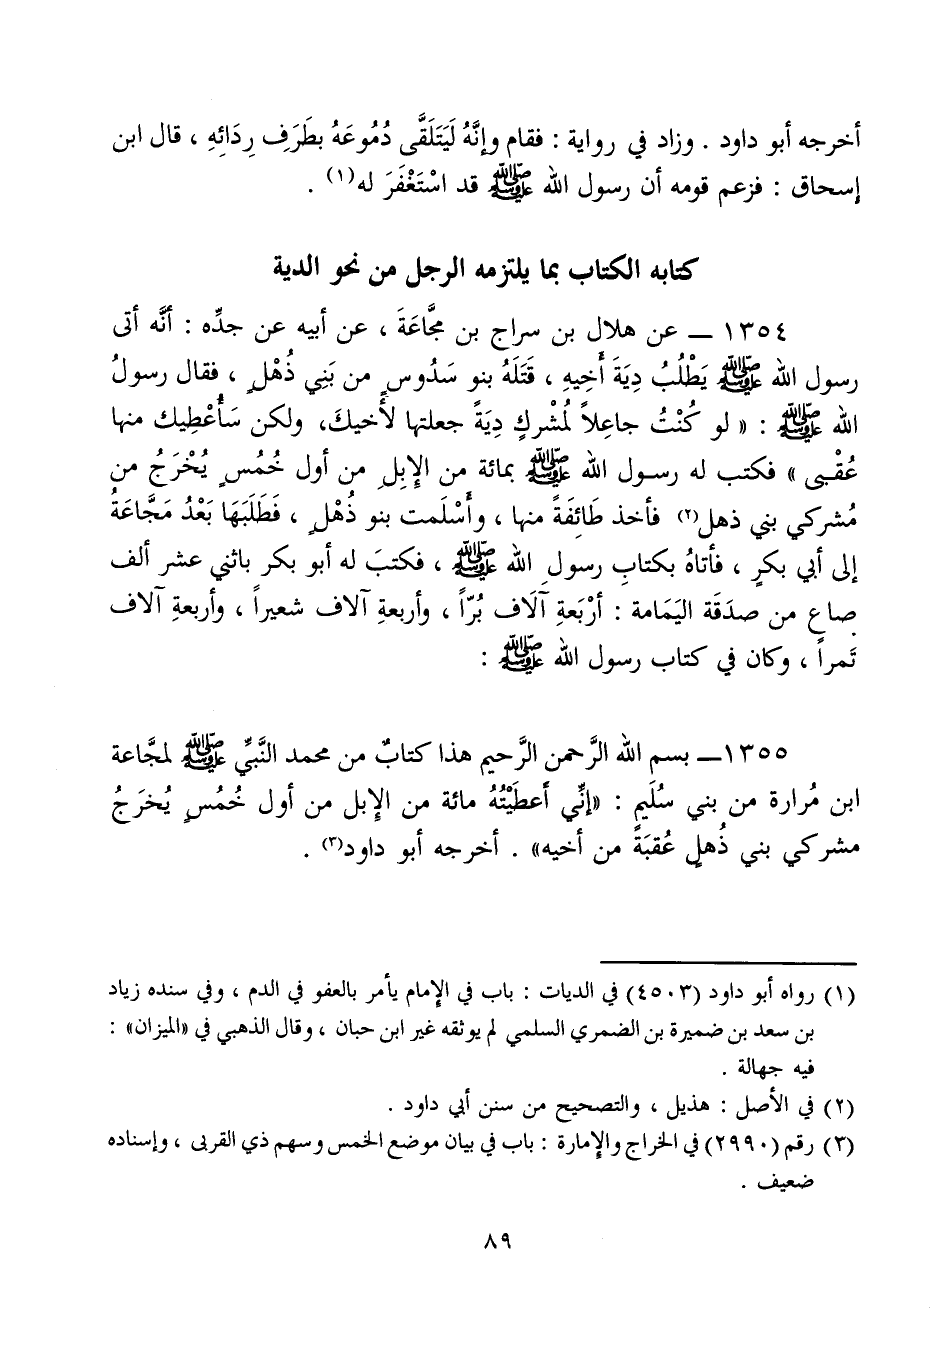 أخرجه أبو داود . وزاد في رواية : فقام وإنَّهُ لَيَتَلَقَّى دُمُوعَهُ بطَرَفِ رِدَائِهِ ، قال ابن
إسحاق : فزعم قومه أن رسول الله ﷺ قد اسْتَغْفَرَ له(١) .
كتابه الكتاب بما يلتزمه الرجل من نحو الدية
١٣٥٤ ــ عن هلال بن سراج بن مجَّاعَةَ ، عن أبيه عن جدِّه : أنَّه أتى
رسول الله ﷺ يَطْلُبُ دِيَةَ أَخِيهِ ، قَتَلَهُ بنو سَدُوسٍ من بَنِي ذُهْلٍ ، فقال رسولُ
الله ﷺ : « لو كُنْتُ جاعِلاً لمُشْركٍ دِيَةً جعلتها لأَخيكَ، ولكن سَأُعْطِيك منها
عُقْبى » فكتب له رسول الله ﷺ بمائة من الإِبِلِ من أول خُمُسٍ يُخْرَجُ من
مُشركي بني ذهل(٢) فأخذ طَائِفَةً منها ، وأَسْلَمت بنو ذُهْلٍ ، فَطَلَبَهَا بَعْدُ مَجَّاعَةُ
إلى أبي بكرٍ ، فأتاهُ بكتابِ رسولِ الله ﷺ ، فكتبَ له أبو بكر باثني عشر ألف
صاع من صدَقَة اليَمَامة : أرْبَعةِ آلَاف بُرّاً ، وأربعةِ آلاف شعيراً ، وأربعةِ آلاف
تَمراً ، وكان في كتاب رسول الله ﷺ :
١٣٥٥ــ بسم الله الرَّحمن الرَّحيم هذا كتابٌ من محمد النَّبيِّ ﷺ لمجَّاعة
ابن مُرارة من بني سُلَيمٍ : «إنِّي أَعطَيْتُهُ مائة من الإبل من أول خُمُسٍ يُخرَجُ
مشركي بني ذُهلٍ عُقبَةً من أخيه» . أخرجه أبو داود(٣) .
(١) رواه أبو داود (٤٥٠٣) في الديات : باب في الإمام يأمر بالعفو في الدم ، وفي سنده زياد
بن سعد بن ضميرة بن الضمري السلمي لم يوثقه غير ابن حبان ، وقال الذهبي في «الميزان» :
فيه جهالة .
(٢) في الأصل : هذيل ، والتصحيح من سنن أبي داود .
(٣) رقم (٢٩٩٠) في الخراج والإمارة : باب في بيان موضع الخمس وسهم ذي القربى ، وإسناده
ضعيف .
٨٩